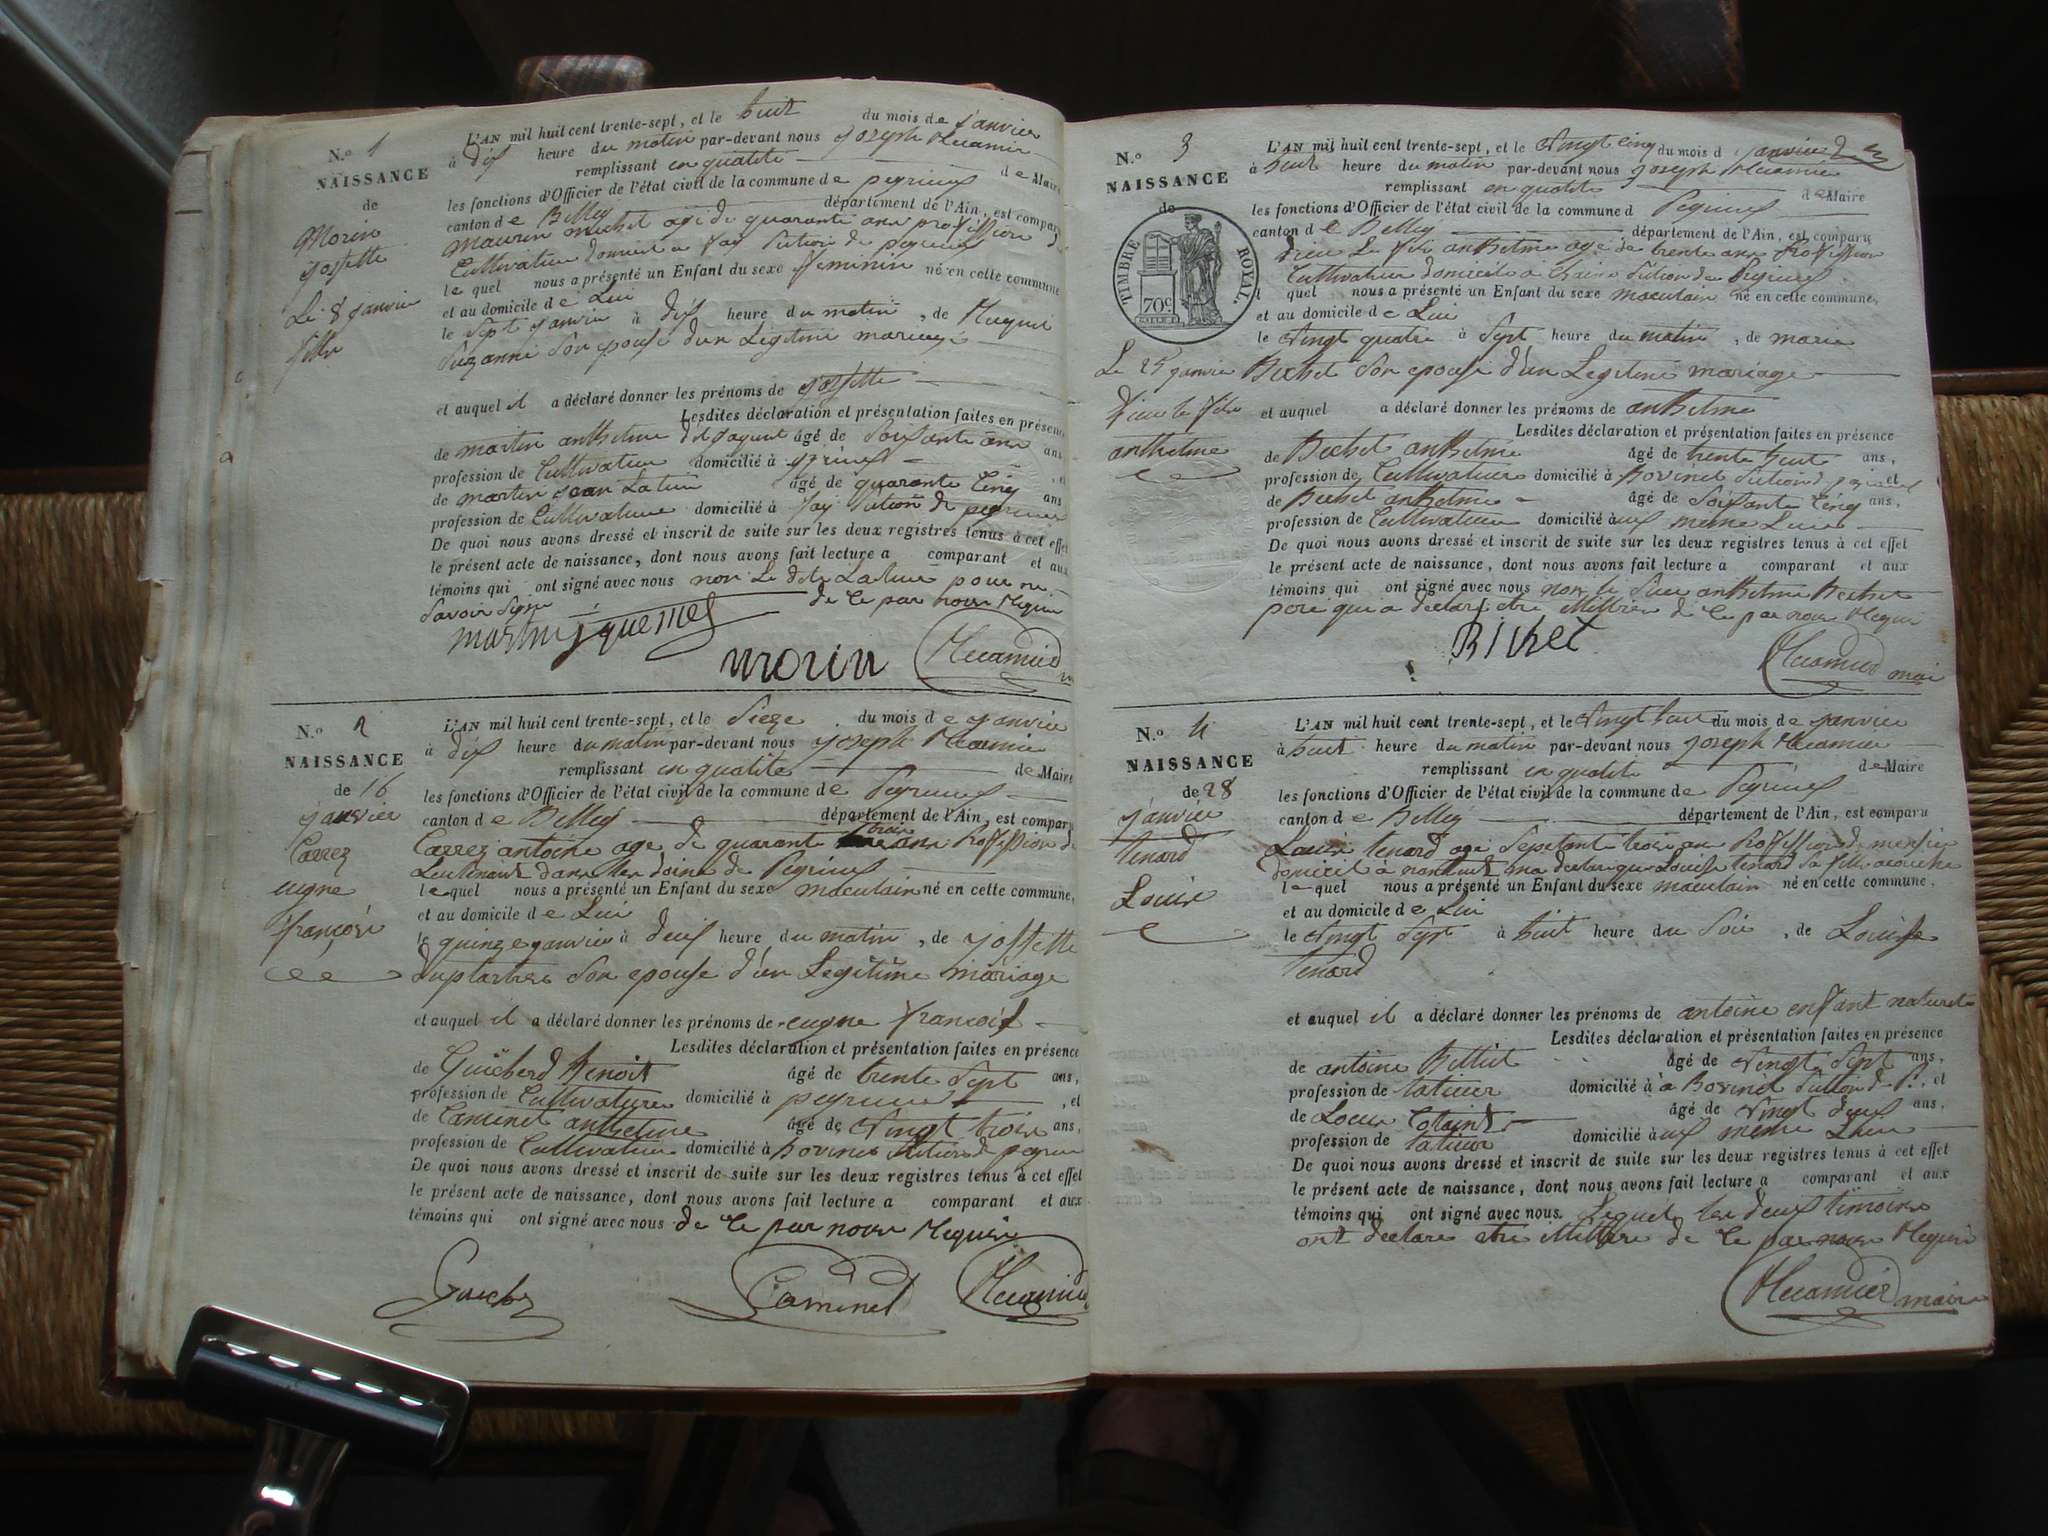 N.º 1
NAISSANCE
de
Morin
josette
Le 8 janvier
fille
L'AN mil huit cent trente-sept, et le huit du mois de janvier
à dix heure du matin par-devant nous joseph Recamier
remplissant en qualité de Maire
les fonctions d'Officier de l'état civil de la commune de peyrieux
canton de Belley département de l'Ain, est comparu
michel agé de quarante ans proffession
Cultivateur domicilié a fay de peyrieux
le quel nous a présenté un Enfant du sexe feminin né en cette commune
et au domicile de Lui
le sept janvier à dix heure du matin, de
Suzanne Son epouse d'un Legitime mariage
et auquel il a déclaré donner les prénoms de josette
Lesdites déclaration et présentation faites en présence
de martin anthelme dit âgé de soixante ans
profession de Cultivateur domicilié à
de martin âgé de quarante cinq ans
profession de Cultivateur domicilié à fay de peyrieux
De quoi nous avons dressé et inscrit de suite sur les deux registres tenus à cet effet
le présent acte de naissance, dont nous avons fait lecture a comparant et aux
témoins qui ont signé avec nous non Le dit pour ne
savoir signe de ce par nous Requis
morin Recamier
N.º 2
NAISSANCE
de 16
janvier
Carrez
eugne
françois
L'AN mil huit cent trente-sept, et le Sieze du mois de janvier
à dix heure du matin par-devant nous joseph Recamier
remplissant en qualité de Maire
les fonctions d'Officier de l'état civil de la commune de Peyrieux
canton de Belley département de l'Ain, est comparu
Carrez antoine age de quarante trois ans Proffession de
Lieutenant dans de Peyrieux
le quel nous a présenté un Enfant du sexe masculain né en cette commune,
et au domicile de Lui
le quinze janvier à deux heure du matin, de josette
Son epouse d'un Legitime mariage
et auquel il a déclaré donner les prénoms de eugne françois
Lesdites déclaration et présentation faites en présence
de Guicherd Benoit âgé de trente sept ans,
profession de Cultivateur domicilié à peyrieux, et
de Caminet anthelme âgé de vingt trois ans,
profession de Cultivateur domicilié à Bovinel de peyrieux
De quoi nous avons dressé et inscrit de suite sur les deux registres tenus à cet effet
le présent acte de naissance, dont nous avons fait lecture a comparant et aux
témoins qui ont signé avec nous de ce par nous Requis
Caminet Recamier
N.º 3
NAISSANCE
de
TIMBRE ROYAL.
70c
Le 25 janvier
anthelme
L'AN mil huit cent trente-sept, et le vingt cinq du mois d janvier
à huit heure du matin par-devant nous joseph Recamier
remplissant en qualité de Maire
les fonctions d'Officier de l'état civil de la commune d Peyrieux
canton de Belley département de l'Ain, est comparu
anthelme age de trente ans Proffession
Cultivateur domicilié a de Peyrieux
l quel nous a présenté un Enfant du sexe masculain né en cette commune,
et au domicile de Lui
le vingt quatre à sept heure du matin, de marie
Bichet Son epouse d'un Legitime mariage
et auquel a déclaré donner les prénoms de anthelme
Lesdites déclaration et présentation faites en présence
de Bichet anthelme âgé de trente huit ans,
profession de Cultivateur domicilié à Bovinel et
de Bichet anthelme âgé de soixante cinq ans,
profession de Cultivateur domicilié à aux meme Lieux
De quoi nous avons dressé et inscrit de suite sur les deux registres tenus à cet effet
le présent acte de naissance, dont nous avons fait lecture a comparant et aux
témoins qui ont signé avec nous non le anthelme Bichet
pere qui a declaré etre de ce par nous Requis
Bichet
Recamier mai
N.º 4
NAISSANCE
de 28
janvier
tenard
Louise
L'AN mil huit cent trente-sept, et le vingt huit du mois de janvier
à huit heure du matin par-devant nous joseph Recamier
remplissant en qualité de Maire
les fonctions d'Officier de l'état civil de la commune de Peyrieux
canton de Belley département de l'Ain, est comparu
Louis tenard agé trois ans Proffession de
domicilié a ma declaré que Louise tenard sa fille
le quel nous a présenté un Enfant du sexe masculain né en cette commune,
et au domicile de Lui
le vingt sept à huit heure du soir, de Louise
tenard
et auquel il a déclaré donner les prénoms de antoine enfant naturel
Lesdites déclaration et présentation faites en présence
de antoine Billiet âgé de vingt sept ans,
profession de domicilié à a Bovinel de P., et
de Louis âgé de vingt deux ans,
profession de domicilié à aux meme Lieu
De quoi nous avons dressé et inscrit de suite sur les deux registres tenus à cet effet
le présent acte de naissance, dont nous avons fait lecture a comparant et aux
témoins qui ont signé avec nous. Lequel les deux timoins
ont declaré etre de ce par nous Requis
Recamier maire